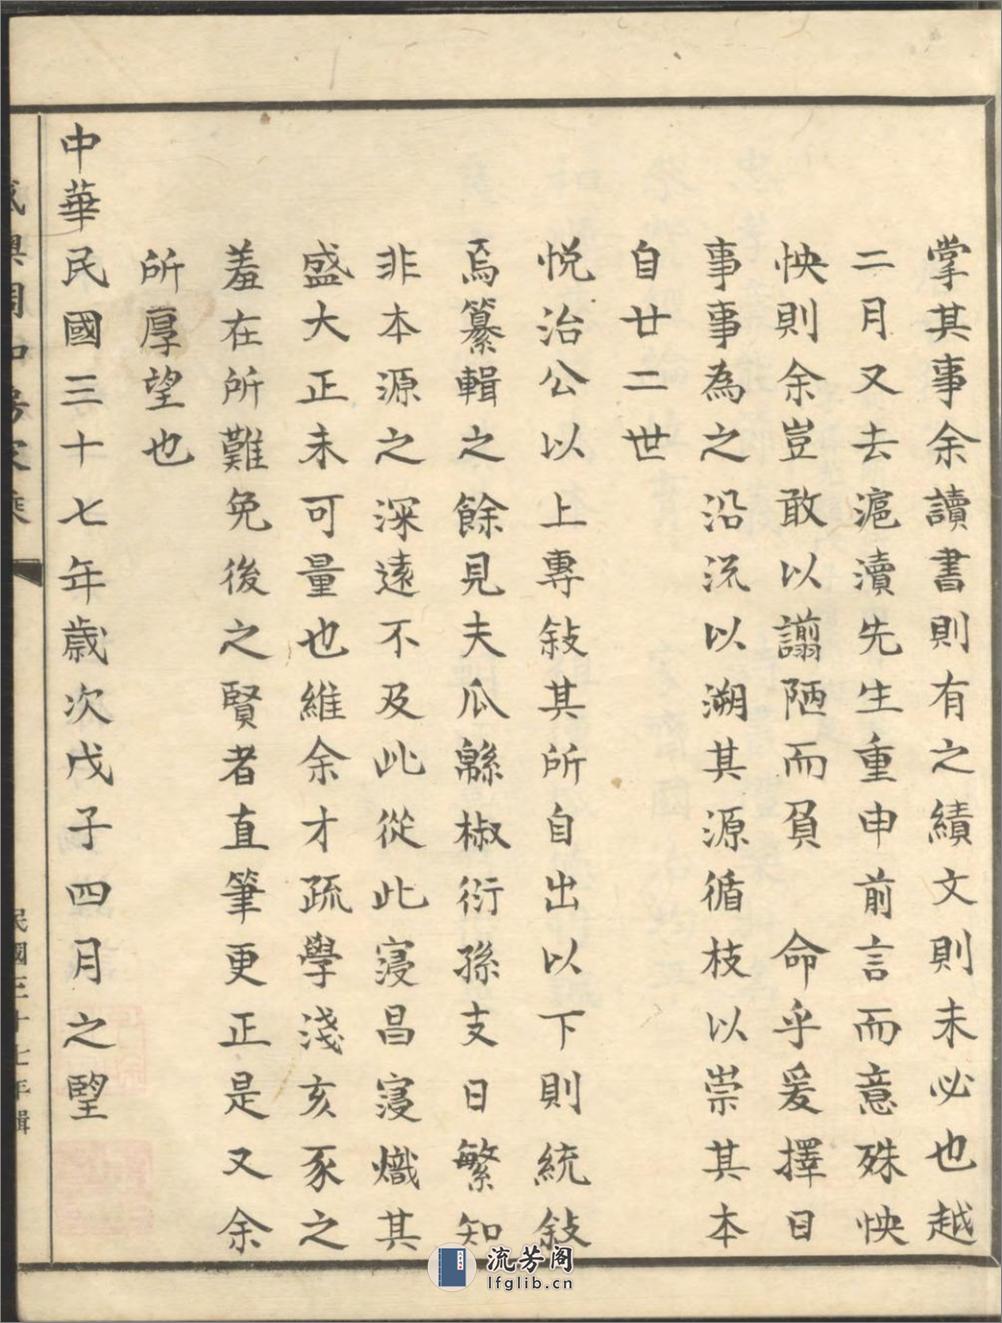 掌其事余讀書則有之績文則未必也越
二月又去滬瀆先生重申前言而意殊怏
怏則余豈敢以譾陋而負　命乎爰擇日
事事為之沿流以溯其源循枝以崇其本
自廿二世
悅治公以上專敍其所自出以下則統敍
焉纂輯之餘見夫瓜緜椒衍孫支日繁知
非本源之深遠不及此從此寖昌寖熾其
盛大正未可量也維余才疏學淺亥豕之
羞在所難免後之賢者直筆更正是又余
所厚望也
中華民國三十七年歲次戊子四月之朢
民國三十七年輯
流芳阁
lfglib.cn